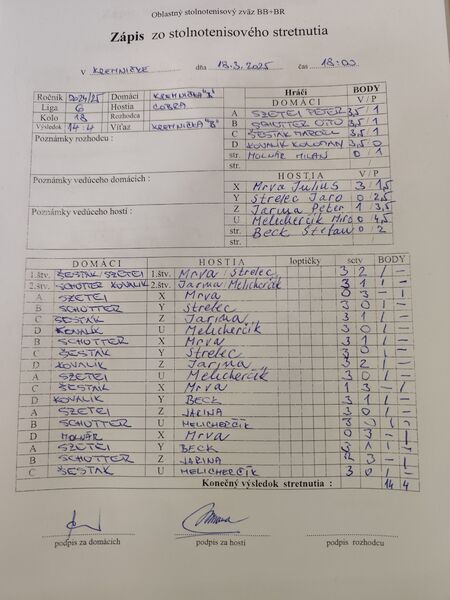 Oblastný stolnotenisový zväz BB+BR
Zápis zo stolnotenisového stretnutia
v KREMNIČKE dňa 18.3.2025 čas 18:00
Ročník 2024/25 Domáci KREMNIČKA "B"
Liga 6 Hostia COBRA
Kolo 18 Rozhodca
Výsledok 14:4 Víťaz KREMNIČKA "B"
Poznámky rozhodcu :
Poznámky vedúceho domácich :
Poznámky vedúceho hostí :
Hráči BODY
DOMÁCI V / P
A SZETEI PETER 3,5/1
B SCHUTTER OTTO 3,5/1
C ŠESTÁK MARCEL 3,5/1
D KOVALIK KOLOMAN 3,5 0
str. MOLNÁR MILAN 0 1
str.
HOSTIA V / P
X Mrva Julius 3 1,5
Y Strelec Jaro 0 2,5
Z Jarina Peter 1 3,5
U Melicherčík Miro 0 4,5
str. Beck Štefan 0 2
str.
DOMÁCI HOSTIA loptičky sety BODY
1.štv. ŠESTÁK/SZETEI 1.štv. Mrva / Strelec 3 2 1 -
2.štv. SCHUTTER KOVALIK 2.štv. Jarina Melicherčík 3 1 1 -
A SZETEI X Mrva 0 3 - 1
B SCHUTTER Y Strelec 3 0 1 -
C ŠESTÁK Z Jarina 3 1 1 -
D KOVALIK U Melicherčík 3 0 1 -
B SCHUTTER X Mrva 3 1 1 -
C ŠESTÁK Y Strelec 3 0 1 -
D KOVALIK Z Jarina 3 2 1 -
A SZETEI U Melicherčík 3 0 1 -
C ŠESTÁK X Mrva 1 3 - 1
D KOVALIK Y BECK 3 1 1 -
A SZETEI Z JARINA 3 0 1 -
B SCHUTTER U MELICHERČÍK 3 0 1 -
D MOLNÁR X Mrva 0 3 - 1
A SZETEI Y BECK 3 1 -
B SCHUTTER Z JARINA 2 3 - 1
C ŠESTÁK U MELICHERČÍK 3 0 1 -
Konečný výsledok stretnutia : 14 4
podpis za domácich podpis za hostí podpis rozhodcu